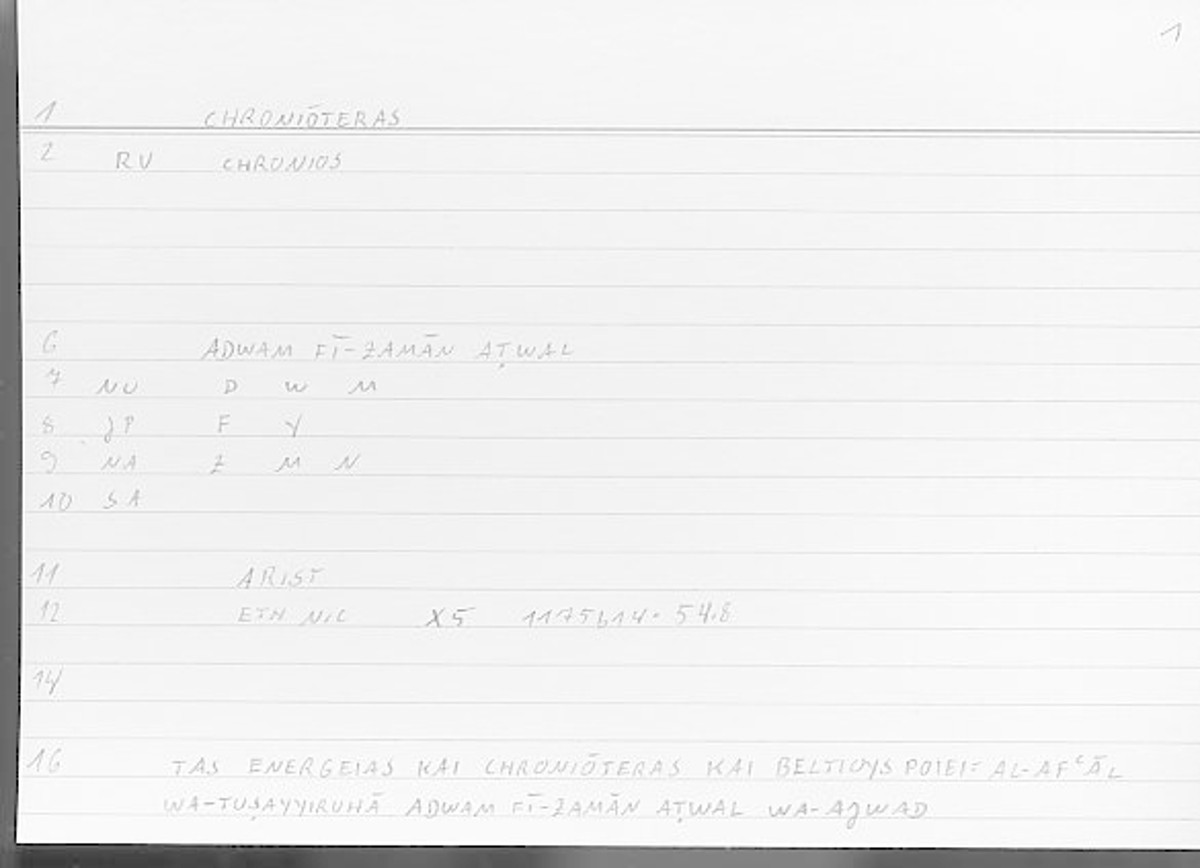 1
1 CHRONIŌTERAS
2 RV CHRONIOS
6 ADWAM FĪ-ZAMĀN AṬWAL
7 NU D W M
8 JP F Y
9 NA Z M N
10 SA
11 ARIST
12 ETH NIC X5 1175b14. 54.8
14
16 TAS ENERGEIAS KAI CHRONIŌTERAS KAI BELTIOYS POIEI: AL-AFʿĀL
WA-TUṢAYYIRUHĀ ADWAM FĪ-ZAMĀN AṬWAL WA-AJWAD